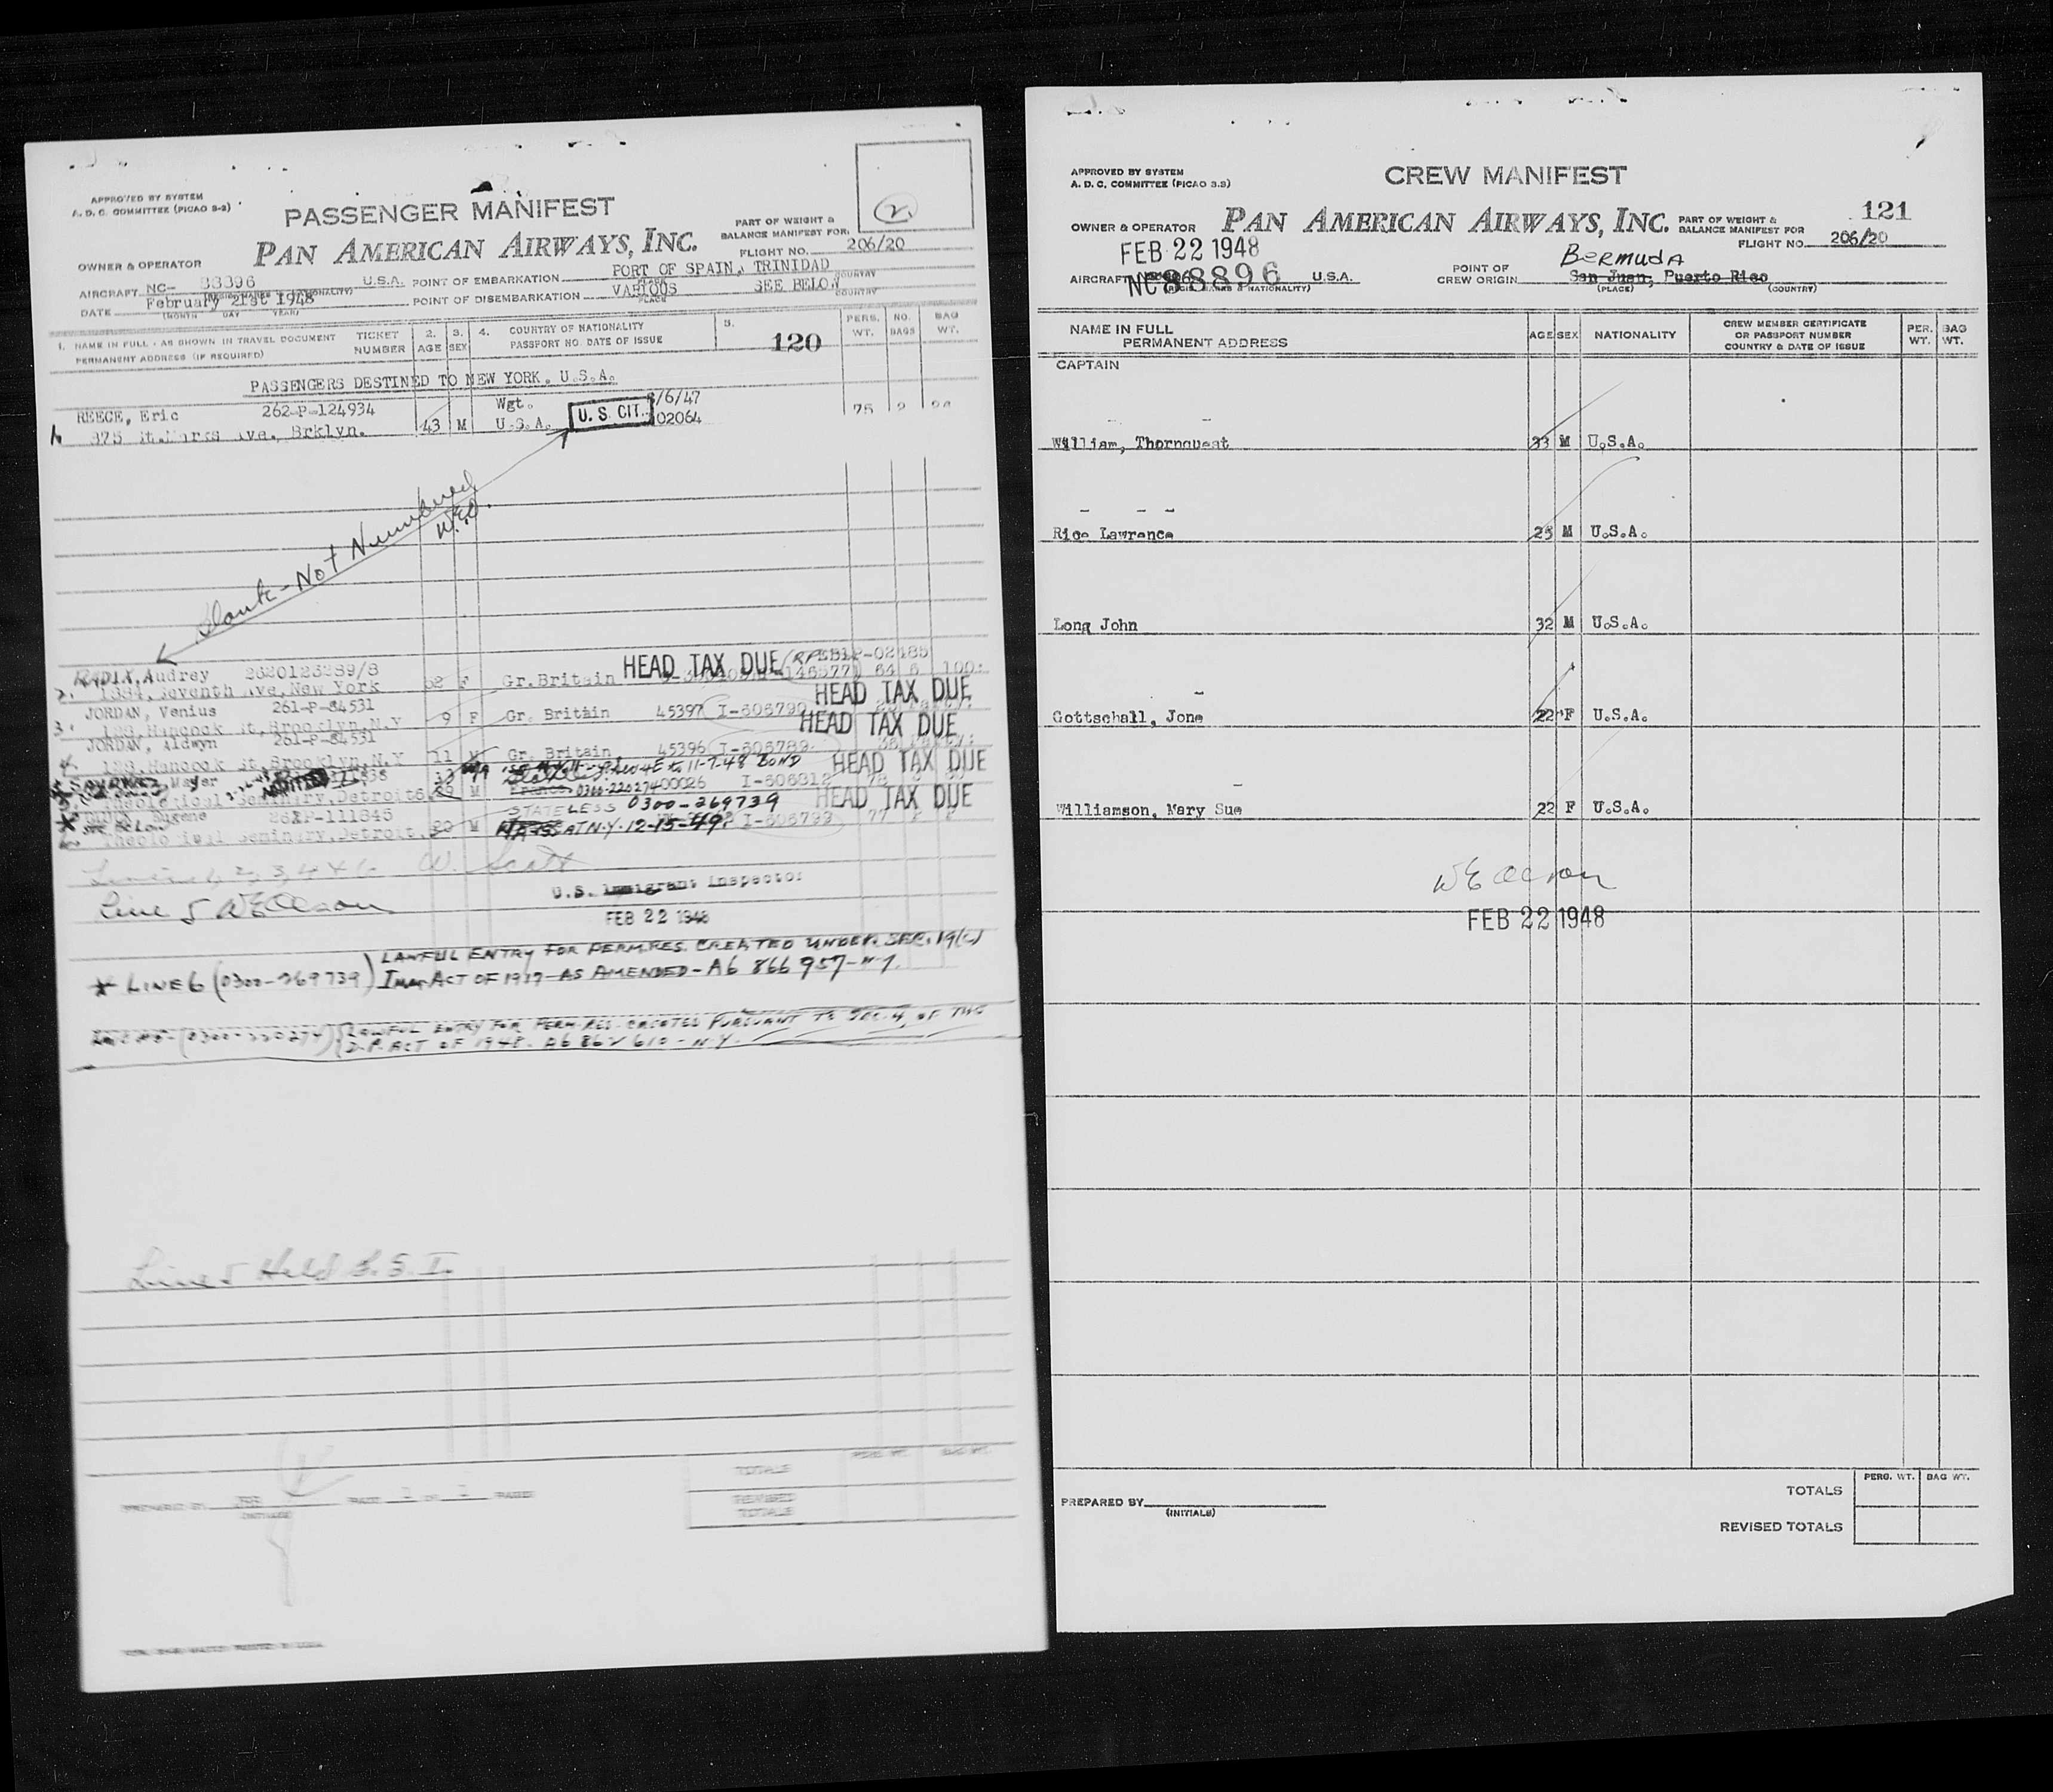 APPROVED BY SYSTEM
A. D. C. COMMITTEE (PICAO 3-3)
PASSENGER MANIFEST
2.
PART OF WEIGHT &
BALANCE MANIFEST FOR
OWNER & OPERATOR
PAN AMERICAN AIRWAYS, INC.
FLIGHT NO. 206/20
AIRCRAFT NC- 88896 U.S.A. POINT OF EMBARKATION PORT OF SPAIN, TRINIDAD
COUNTRY
DATE February 21st 1948 POINT OF DISEMBARKATION VARIOUS SEE BELOW
(MONTH DAY YEAR) PLACE COUNTRY
1. NAME IN FULL - AS SHOWN IN TRAVEL DOCUMENT
PERMANENT ADDRESS (IF REQUIRED)
TICKET
NUMBER
2.
AGE
3.
SEX
4. COUNTRY OF NATIONALITY
PASSPORT NO. DATE OF ISSUE
5.
120
PERS.
WT.
NO.
BAGS
BAG
WT.
PASSENGERS DESTINED TO NEW YORK, U.S.A.
REECE, Eric 262-P-124934 Wgt. /6/47
875 St.Marks Ave., Brklyn. 43 M U.S.A. U. S. CIT. 02064 75 2
Blank - Not Numbered
W.E.O.
RADIX, Audrey 2620123289/8 HEAD TAX DUE
2. 1884, Seventh Ave, New York F Gr. Britain 64 6 100
HEAD TAX DUE
JORDAN, Venius 261-P-84531
3. 128, Hancock St, Brooklyn, N.Y 9 F Gr. Britain 45397 I-606790
HEAD TAX DUE
JORDAN, Aldwyn 261-P-84531
4. 128, Hancock St, Brooklyn, N.Y 11 M Gr. Britain 45396 I-606789
HEAD TAX DUE
to 11-7-48 BOND
Theological Seminary, Detroit M France 0300-220274 00026 I-606812
HEAD TAX DUE
Eugene 262P-111845 STATELESS 0300-269739
SEE BELOW
Theological Seminary, Detroit. 20 M AT N.Y. 12-15-49 I-606799 77
W. Scott
Line 5 W E Olson
U.S. Immigrant Inspector
FEB 22 1948
* LINE 6 (0300-269739) LAWFUL ENTRY FOR PERM. RES. CREATED UNDER SEC. 19(c)
IMM. ACT OF 1917 AS AMENDED - A6 866 957-
(0300-220274) LAWFUL ENTRY FOR PERM. RES. CREATED PURSUANT TO SEC. 4, OF THE
D.P. ACT OF 1948. A6 862 610 - N.Y.
Line 5 Held B. S. I.
TOTALS
PERS. WT. BAG WT.
PREPARED BY PAGE OF PAGES
(INITIALS)
REVISED
TOTALS
APPROVED BY SYSTEM
A. D. C. COMMITTEE (PICAO 3-3)
CREW MANIFEST
121
OWNER & OPERATOR
PAN AMERICAN AIRWAYS, INC.
PART OF WEIGHT &
BALANCE MANIFEST FOR
FLIGHT NO. 206/20
FEB 22 1948
BERMUDA
AIRCRAFT NC 88896 U.S.A.
POINT OF
CREW ORIGIN San Juan, Puerto Rico
(PLACE) (COUNTRY)
NAME IN FULL
PERMANENT ADDRESS
AGE SEX NATIONALITY
CREW MEMBER CERTIFICATE
OR PASSPORT NUMBER
COUNTRY & DATE OF ISSUE
PER.
WT.
BAG
WT.
CAPTAIN
William, Thornquest 33 M U.S.A.
Rice Lawrence 25 M U.S.A.
Long John 32 M U.S.A.
Gottschall, Jone 22 F U.S.A.
Williamson, Mary Sue 22 F U.S.A.
W E Olson
FEB 22 1948
PREPARED BY
(INITIALS)
PERS. WT. BAG WT.
TOTALS
REVISED TOTALS